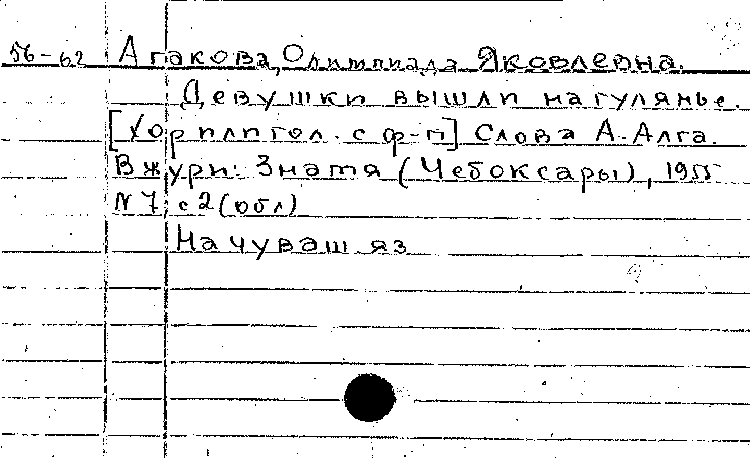 56-62 Агакова, Олимпиада Яковлевна.
Девушки вышли на гулянье.
[Хор или гол. с ф-п] Слова А. Алга.
В журн: Знамя (Чебоксары), 1955
N 7, с 2 (обл)
На чуваш яз